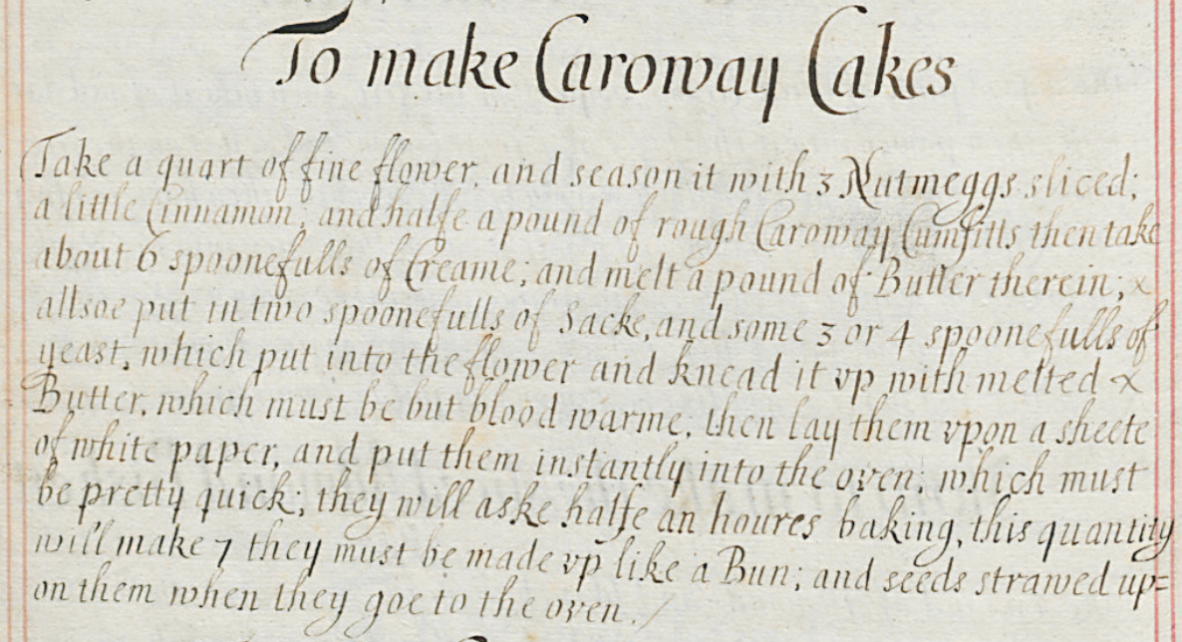 To make Caroway Cakes
Take a quart of fine flower, and season it with 3 Nutmeggs sliced;
a little Cinnamon, and halfe a pound of rough Caroway Cumfitts then take
about 6 spoonefulls of Creame; and melt a pound of Butter therein; &
allsoe put in two spoonefulls of Sacke, and some 3 or 4 spoonefulls of
yeast, which put into the flower and knead it vp with melted &
Butter, which must be but blood warme; then lay them vpon a sheete
of white paper, and put them instantly into the oven; which must
be pretty quick; they will aske halfe an houres baking, this quantity
will make 7 they must be made vp like a Bun; and seeds strawed up=
on them when they goe to the oven./